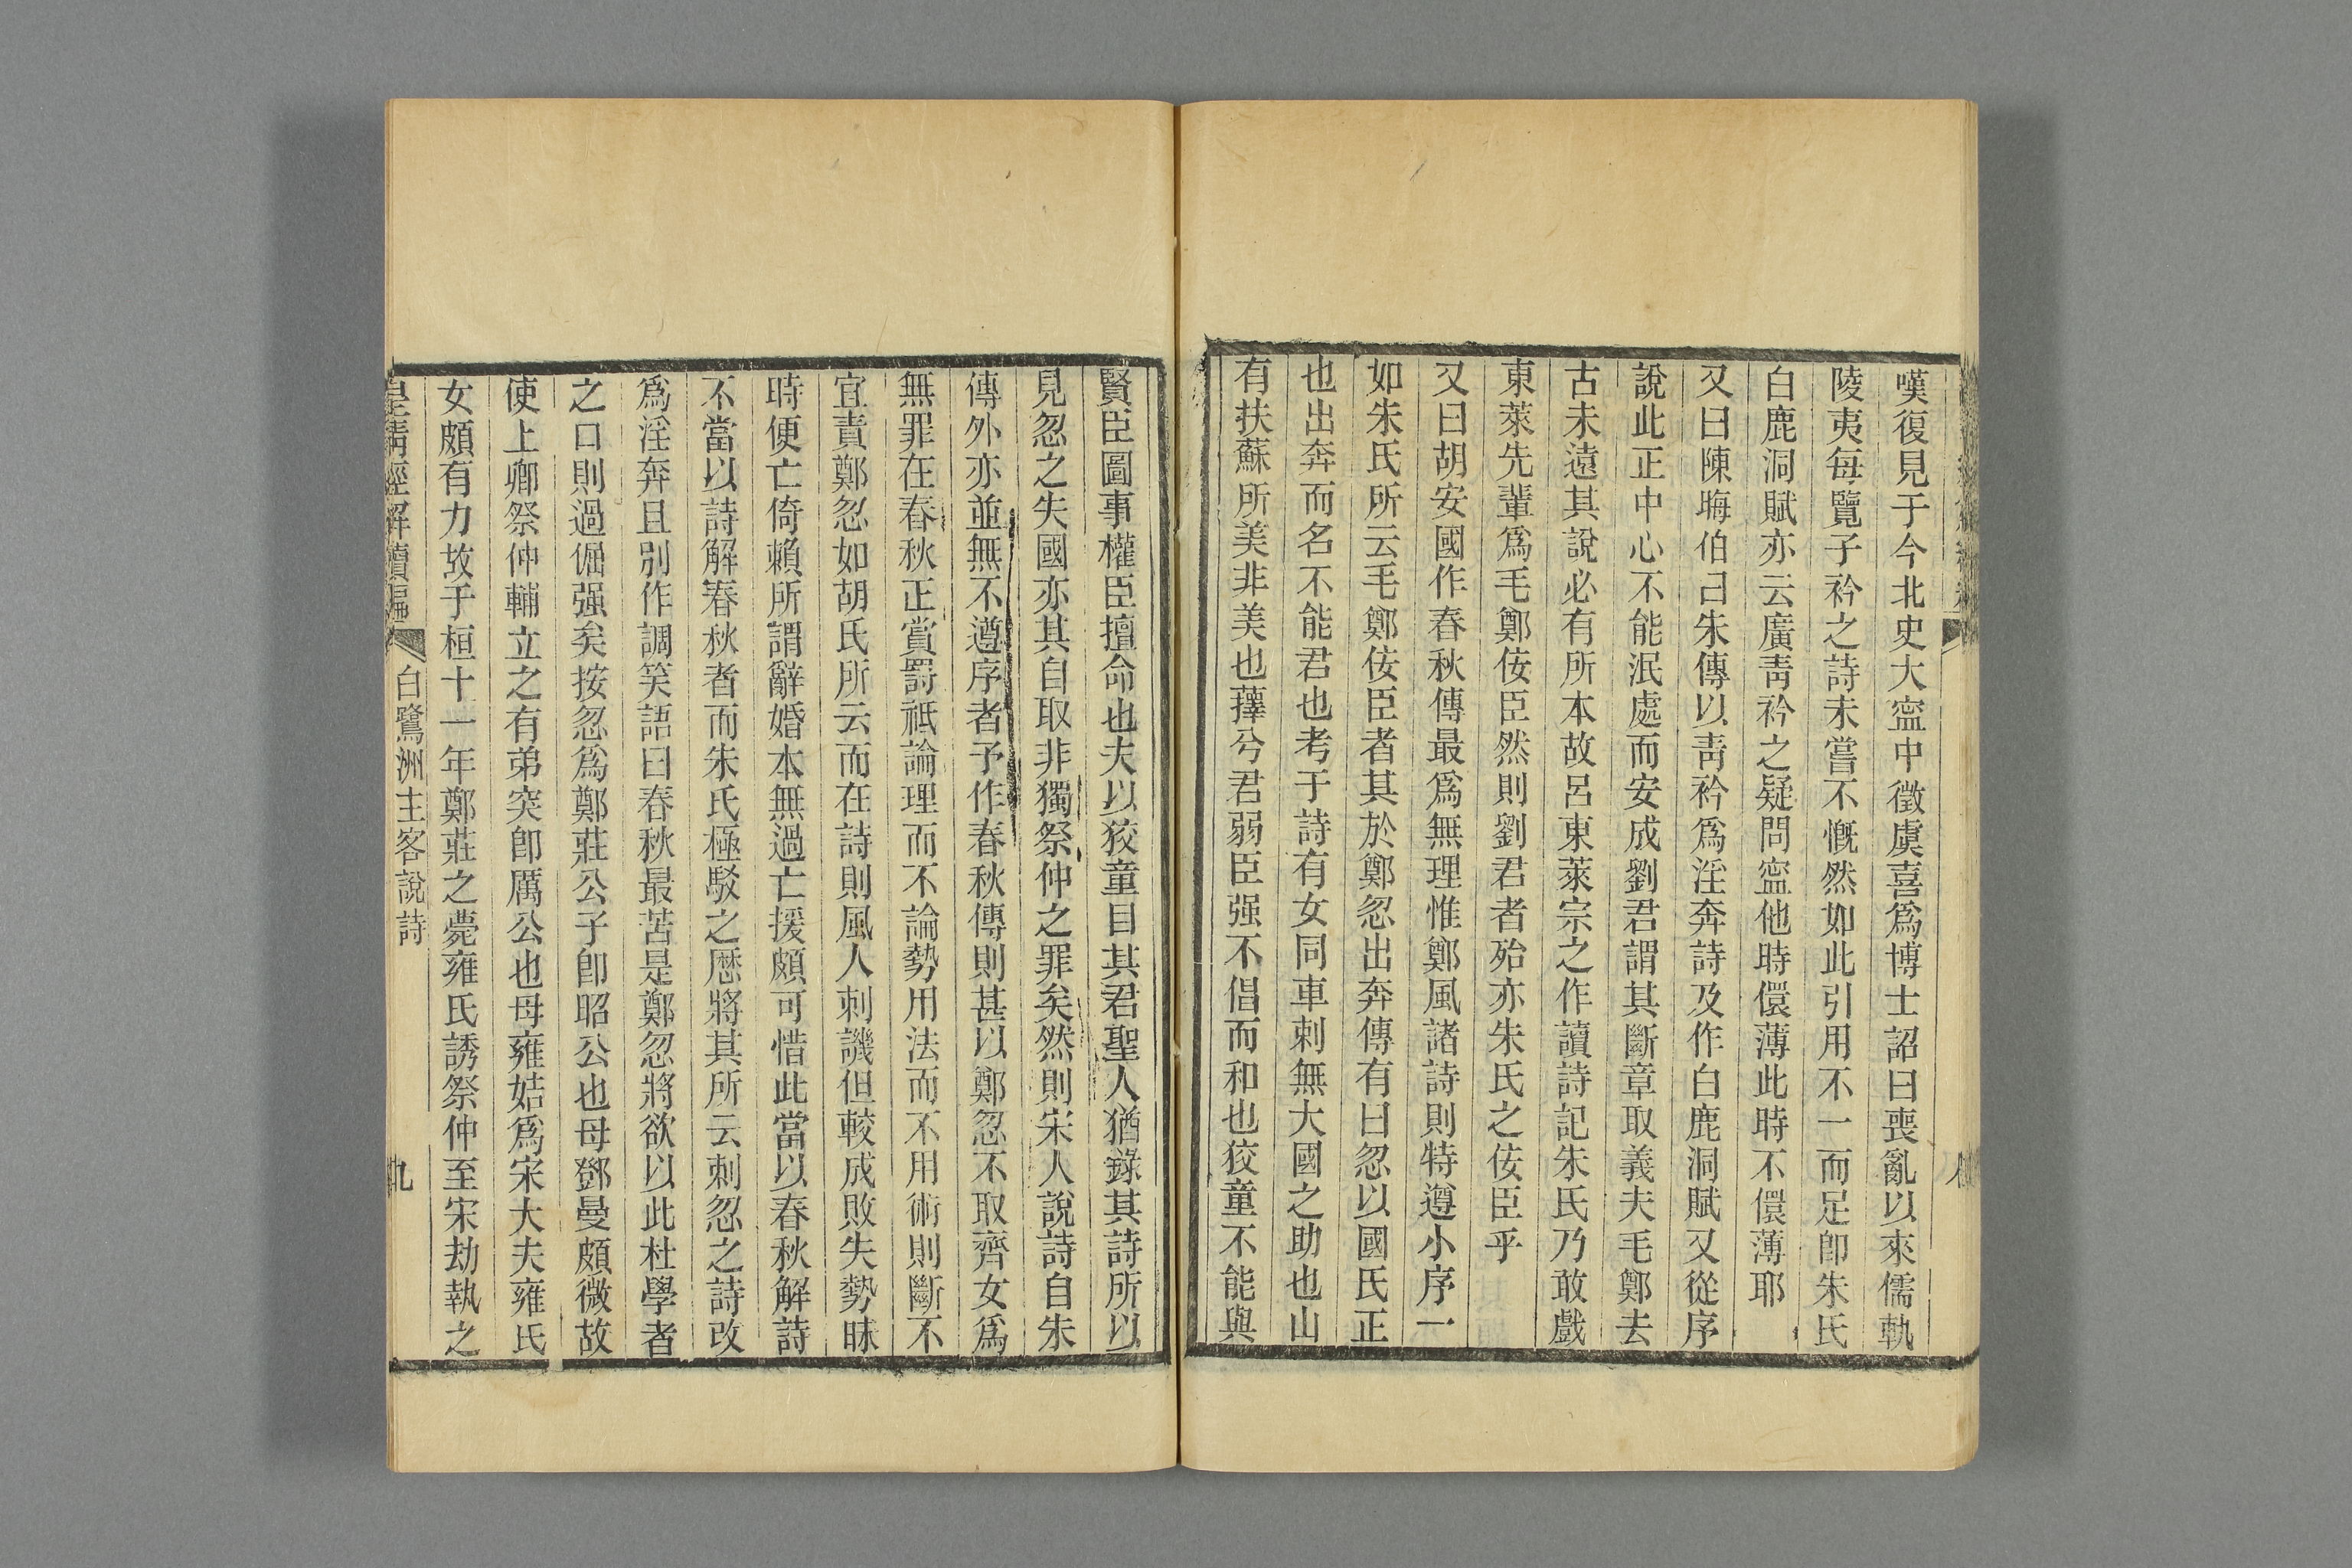 嘆復見于今北史大寍中徵虞喜爲博士詔曰喪亂以來儒軌
陵夷每覽子衿之詩未嘗不慨然如此引用不一而足卽朱氏
白鹿洞賦亦云廣靑衿之疑問寍他時儇薄此時不儇薄耶
又曰陳晦伯己朱傳以靑衿爲淫奔詩及作白鹿洞賦又從序
說此正中心不能泯處而安成劉君謂其斷章取義夫毛鄭去
古未遠其說必有所本故呂東萊宗之作讀詩記朱氏乃敢戲
東萊先輩爲毛鄭佞臣然則劉君者殆亦朱氏之佞臣乎
又曰胡安國作春秋傳最爲無理惟鄭風諸詩則特遵小序一
如朱氏所云毛鄭佞臣者其於鄭忽出奔傳有曰忽以國氏正
也出奔而名不能君也考于詩有女同車刺無大國之助也山
有扶蘇所美非美也蘀兮君弱臣强不倡而和也狡童不能與
賢臣圖事權臣擅命也夫以狡童目其君聖人猶錄其詩所以
見忽之失國亦其自取非獨祭仲之罪矣然則宋人說詩自朱
傳外亦並無不遵序者予作春秋傳則甚以鄭忽不取齊女爲
無罪在春秋正賞罰祗論理而不論勢用法而不用術則斷不
宜責鄭忽如胡氏所云而在詩則風人刺譏但較成敗失勢昧
時便亡倚賴所謂辭婚本無過亡援頗可惜此當以春秋解詩
不當以詩解春秋者而朱氏極駁之厯將其所云刺忽之詩改
爲淫奔且別作調笑語曰春秋最苦是鄭忽將欲以此杜學者
之口則過倔强矣按忽爲鄭莊公子卽昭公也母鄧曼頗微故
使上卿祭仲輔立之有弟突卽厲公也母雍姞爲宋大夫雍氏
女頗有力故于桓十一年鄭莊之薨雍氏誘祭仲至宋劫執之
皇淸經解續編
白鷺洲主客說詩
九